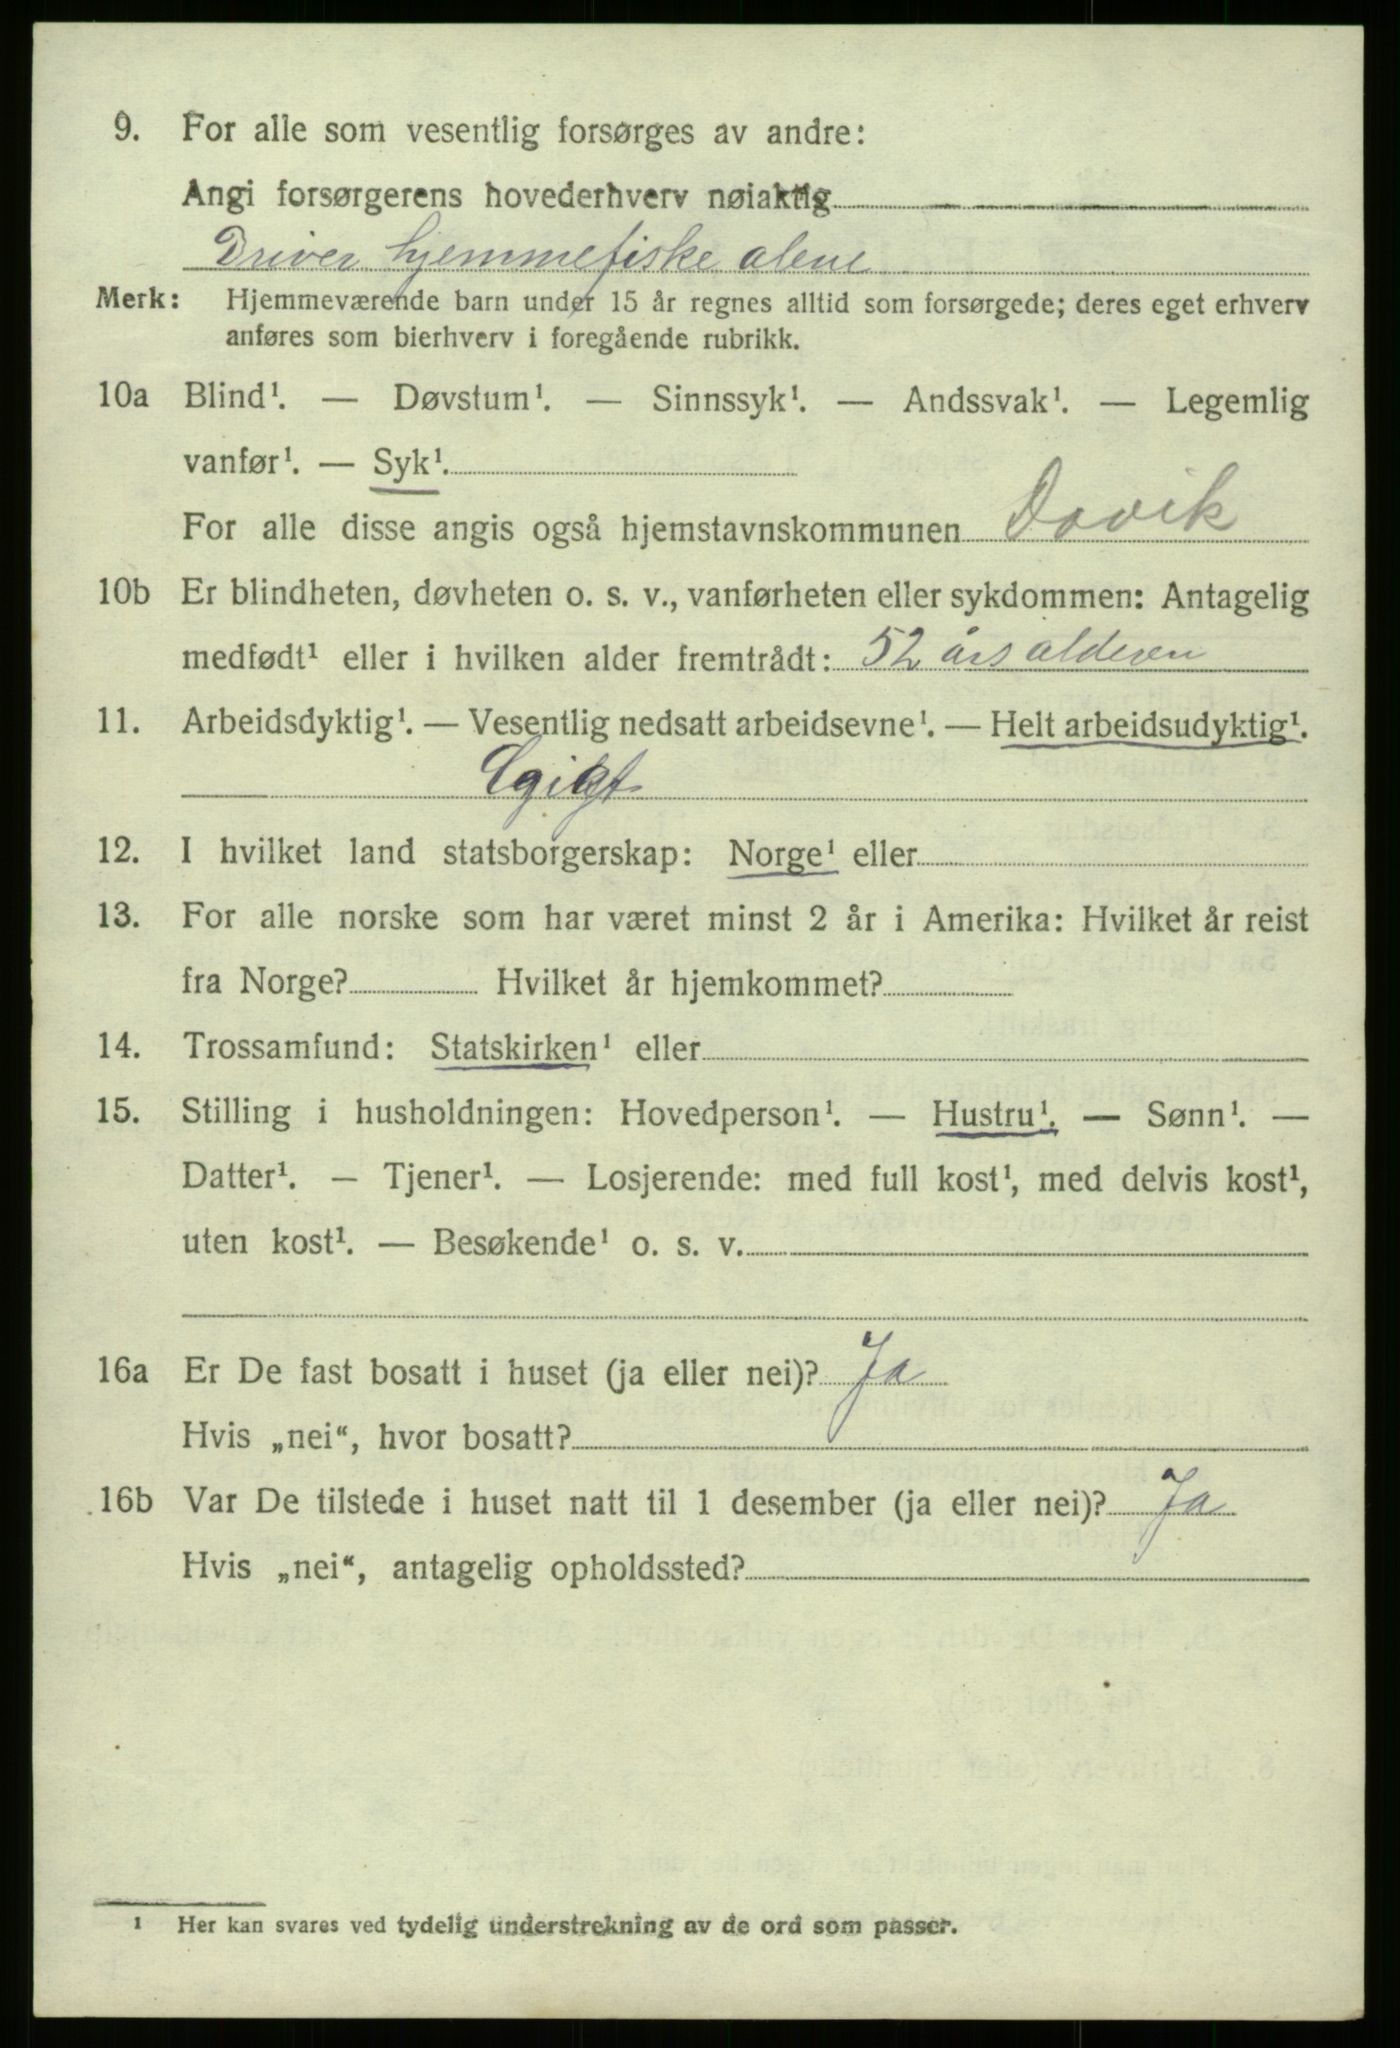 9. For alle som vesentlig forsørges av andre:
Angi forsørgerens hovederhverv nøiaktig
Driver hjemmefiske alene
Merk: Hjemmeværende barn under 15 år regnes alltid som forsørgede; deres eget erhverv
anføres som bierhverv i foregående rubrikk.
10a Blind¹. — Døvstum¹. — Sinnssyk¹. — Andssvak¹. — Legemlig
vanfør¹. — Syk¹.
For alle disse angis også hjemstavnskommunen Davik
10b Er blindheten, døvheten o. s. v., vanførheten eller sykdommen: Antagelig
medfødt¹ eller i hvilken alder fremtrådt: 52 års alderen
11. Arbeidsdyktig¹. — Vesentlig nedsatt arbeidsevne¹. — Helt arbeidsudyktig¹.
12. I hvilket land statsborgerskap: Norge¹ eller
13. For alle norske som har været minst 2 år i Amerika: Hvilket år reist
fra Norge? Hvilket år hjemkommet?
14. Trossamfund: Statskirken¹ eller
15. Stilling i husholdningen: Hovedperson¹. — Hustru¹. — Sønn¹. —
Datter¹. — Tjener¹. — Losjerende: med full kost¹, med delvis kost¹,
uten kost¹. — Besøkende¹ o. s. v.
16a Er De fast bosatt i huset (ja eller nei)? Ja
Hvis „nei“, hvor bosatt?
16b Var De tilstede i huset natt til 1 desember (ja eller nei)? Ja
Hvis „nei“, antagelig opholdssted?
¹ Her kan svares ved tydelig understrekning av de ord som passer.